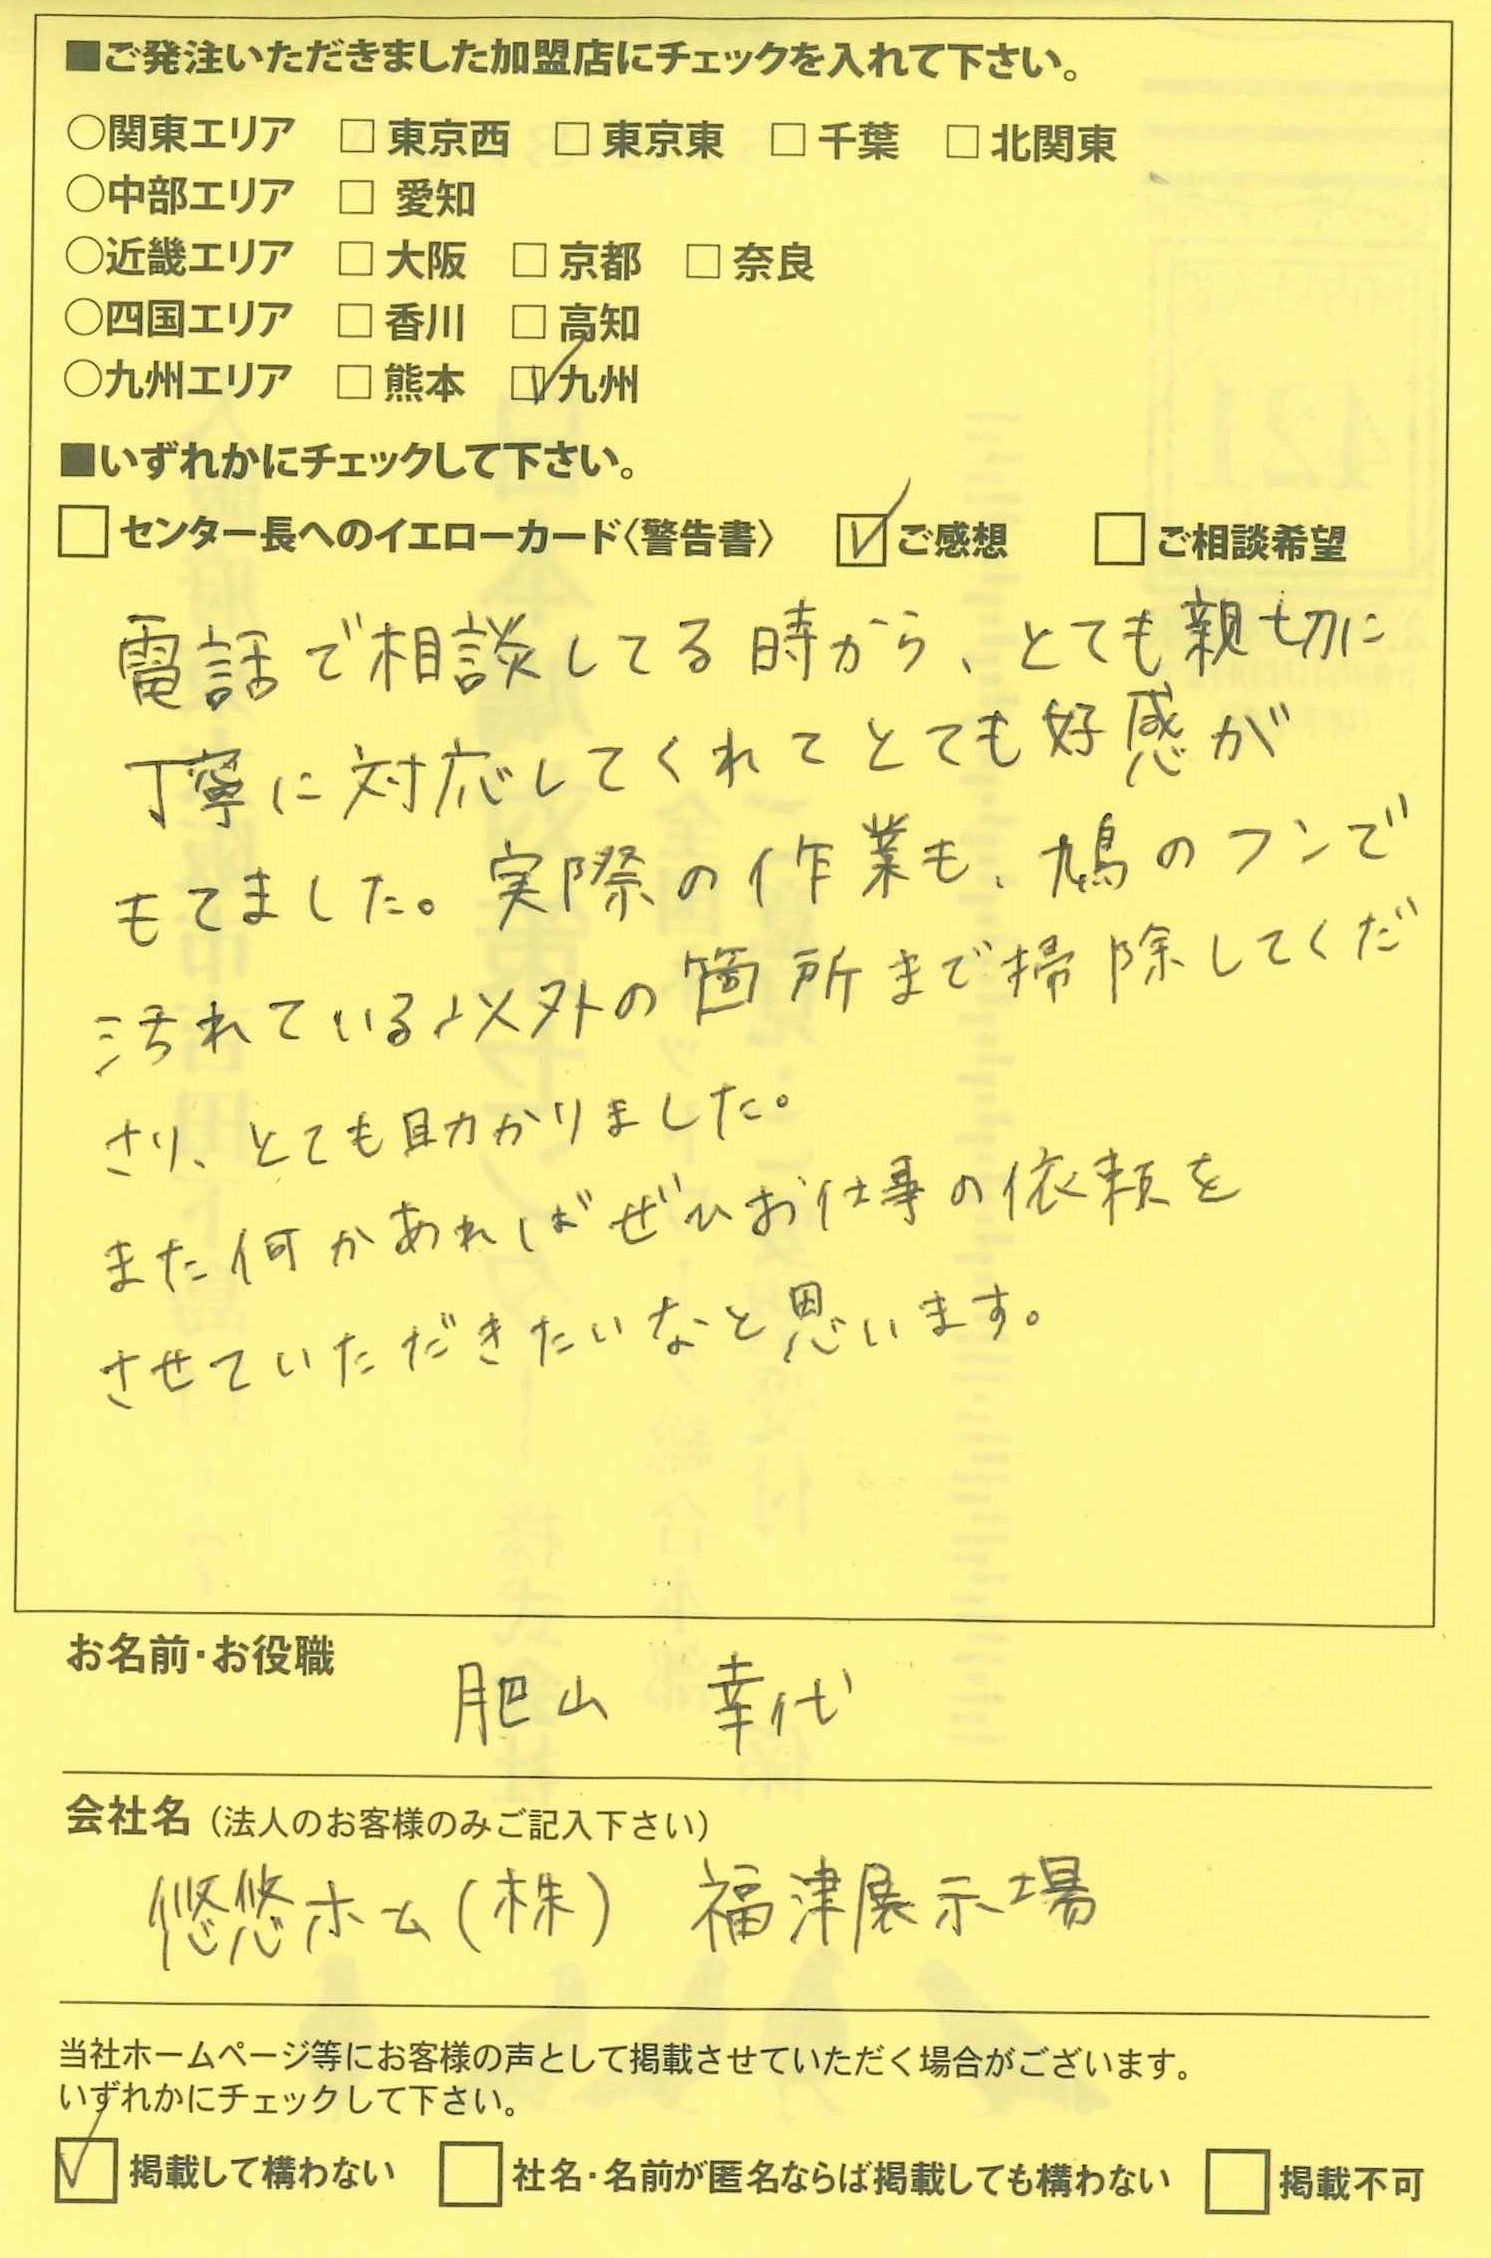 ■ご発注いただきました加盟店にチェックを入れて下さい。
○関東エリア □ 東京西 □ 東京東 □ 千葉 □ 北関東
○中部エリア □ 愛知
○近畿エリア □ 大阪 □ 京都 □ 奈良
○四国エリア □ 香川 □ 高知
○九州エリア □ 熊本 ☑ 九州
■いずれかにチェックして下さい。
□ センター長へのイエローカード〈警告書〉 ☑ ご感想 □ ご相談希望
電話で相談してる時から、とても親切に
丁寧に対応してくれてとても好感が
もてました。実際の作業も、鳩のフンで
汚れている以外の箇所まで掃除してくだ
さり、とても助かりました。
また何かあればぜひお仕事の依頼を
させていただきたいなと思います。
お名前・お役職
肥山 幸代
会社名（法人のお客様のみご記入下さい）
悠悠ホーム(株) 福津展示場
当社ホームページ等にお客様の声として掲載させていただく場合がございます。
いずれかにチェックして下さい。
☑ 掲載して構わない □ 社名・名前が匿名ならば掲載しても構わない □ 掲載不可